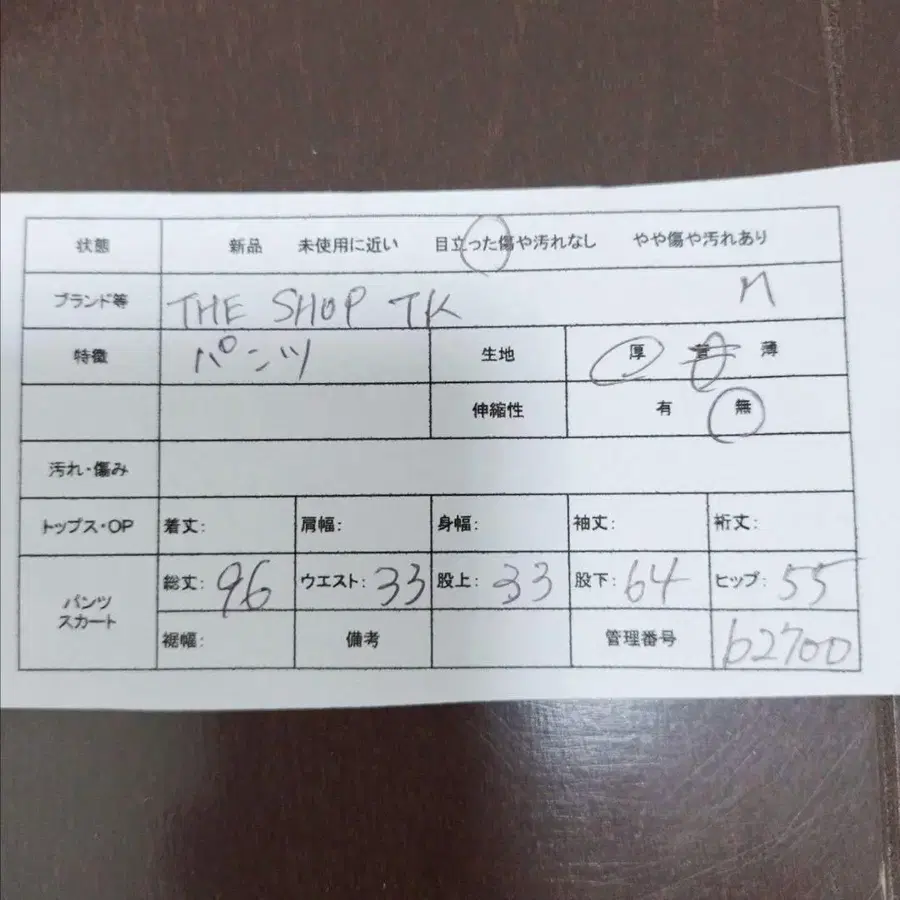 状態 新品 未使用に近い 目立った傷や汚れなし やや傷や汚れあり
ブランド等 THE SHOP TK M
特徴 パンツ 生地 厚 普 薄
伸縮性 有 無
汚れ・傷み
トップス・OP 着丈: 肩幅: 身幅: 袖丈: 裄丈:
パンツ スカート 総丈: 96 ウエスト: 33 股上: 33 股下: 64 ヒップ: 55
裾幅: 備考 管理番号 62700